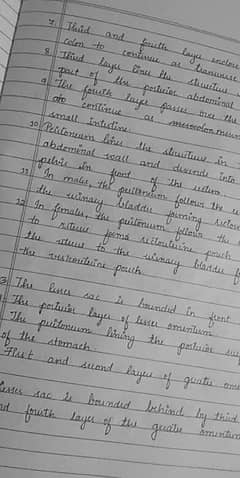 7. Third and fourth layer enclose
colon to continue as transverse
8 Third layer lines the structure
part of the posterior abdominal
9 The fourth layer passes over the
to continue as mesocolon
small intestine.
10 Peritoneum lines the structure in
abdominal wall and descends into
pelvis in front of the
11 In male, the peritoneum follows the
the urinary bladder forming
12 In female, the peritoneum follows the
to uterus forms rectouterine pouch
the uterus to the urinary bladder
the vesicouterine pouch.
The lesser sac is bounded in front
The posterior layer of lesser omentum
The peritoneum lining the posterior
of the stomach.
First and second layer of greater
lesser sac is bounded behind by third
fourth layer of the greater omentum